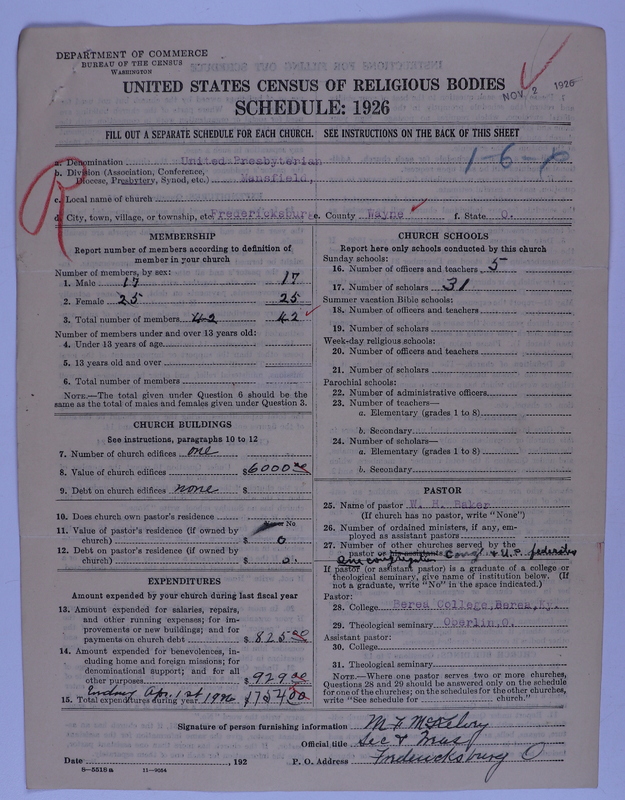 DEPARTMENT OF COMMERCE
BUREAU OF THE CENSUS
WASHINGTON
UNITED STATES CENSUS OF RELIGIOUS BODIES
NOV 2 1926
SCHEDULE: 1926
FILL OUT A SEPARATE SCHEDULE FOR EACH CHURCH. SEE INSTRUCTIONS ON THE BACK OF THIS SHEET
R
1-6-
a. Denomination United Presbyterian
b. Division (Association, Conference,
Diocese, Presbytery, Synod, etc.) Mansfield,
c. Local name of church
d. City, town, village, or township, etc. Fredericksburg e. County Wayne f. State O.
MEMBERSHIP
Report number of members according to definition of
member in your church
Number of members, by sex:
1. Male 17 17
2. Female 25 25
3. Total number of members 42 42
Number of members under and over 13 years old:
4. Under 13 years of age
5. 13 years old and over
6. Total number of members
NOTE.—The total given under Question 6 should be
same as the total of males and females given under Question 3.
CHURCH BUILDINGS
See instructions, paragraphs 10 to 12
7. Number of church edifices one
8. Value of church edifices $6000 00
9. Debt on church edifices none $
10. Does church own pastor's residence
No
11. Value of pastor's residence (if owned by
church) $ 0
12. Debt on pastor's residence (if owned by
church) $ 0
EXPENDITURES
Amount expended by your church during last fiscal year
13. Amount expended for salaries, repairs,
and other running expenses; for im-
provements or new buildings; and for
payments on church debt $ 825 00
14. Amount expended for benevolences, in-
cluding home and foreign missions; for
denominational support; and for all
other purposes $ 929 00
Ending Apr. 1st 1926
15. Total expenditures during year $1754 00
CHURCH SCHOOLS
Report here only schools conducted by this church
Sunday schools:
16. Number of officers and teachers 5
17. Number of scholars 31
Summer vacation Bible schools:
18. Number of officers and teachers
19. Number of scholars
Week-day religious schools:
20. Number of officers and teachers
21. Number of scholars
Parochial schools:
22. Number of administrative officers
23. Number of teachers—
a. Elementary (grades 1 to 8)
b. Secondary
24. Number of scholars—
a. Elementary (grades 1 to 8)
b. Secondary
PASTOR
25. Name of pastor W. H. Baker
(If church has no pastor, write "None")
26. Number of ordained ministers, if any, em-
ployed as assistant pastors
27. Number of other churches served by the
pastor or his assistants Cong'l & U.P. federated
one congregation
If pastor (or assistant pastor) is a graduate of a college or
theological seminary, give name of institution below. (If
not a graduate, write "No" in the space indicated.)
Pastor:
28. College Berea College, Berea, Ky.
29. Theological seminary Oberlin, O.
Assistant pastor:
30. College
31. Theological seminary
NOTE.—Where one pastor serves two or more churches,
Questions 28 and 29 should be answered only on the schedule
for one of the churches; on the schedules for the other churches,
write "See schedule for church."
Signature of person furnishing information M F
Official title Sec & Treas
Date , 192 P. O. Address Fredericksburg O
8—5518 a 11—9054